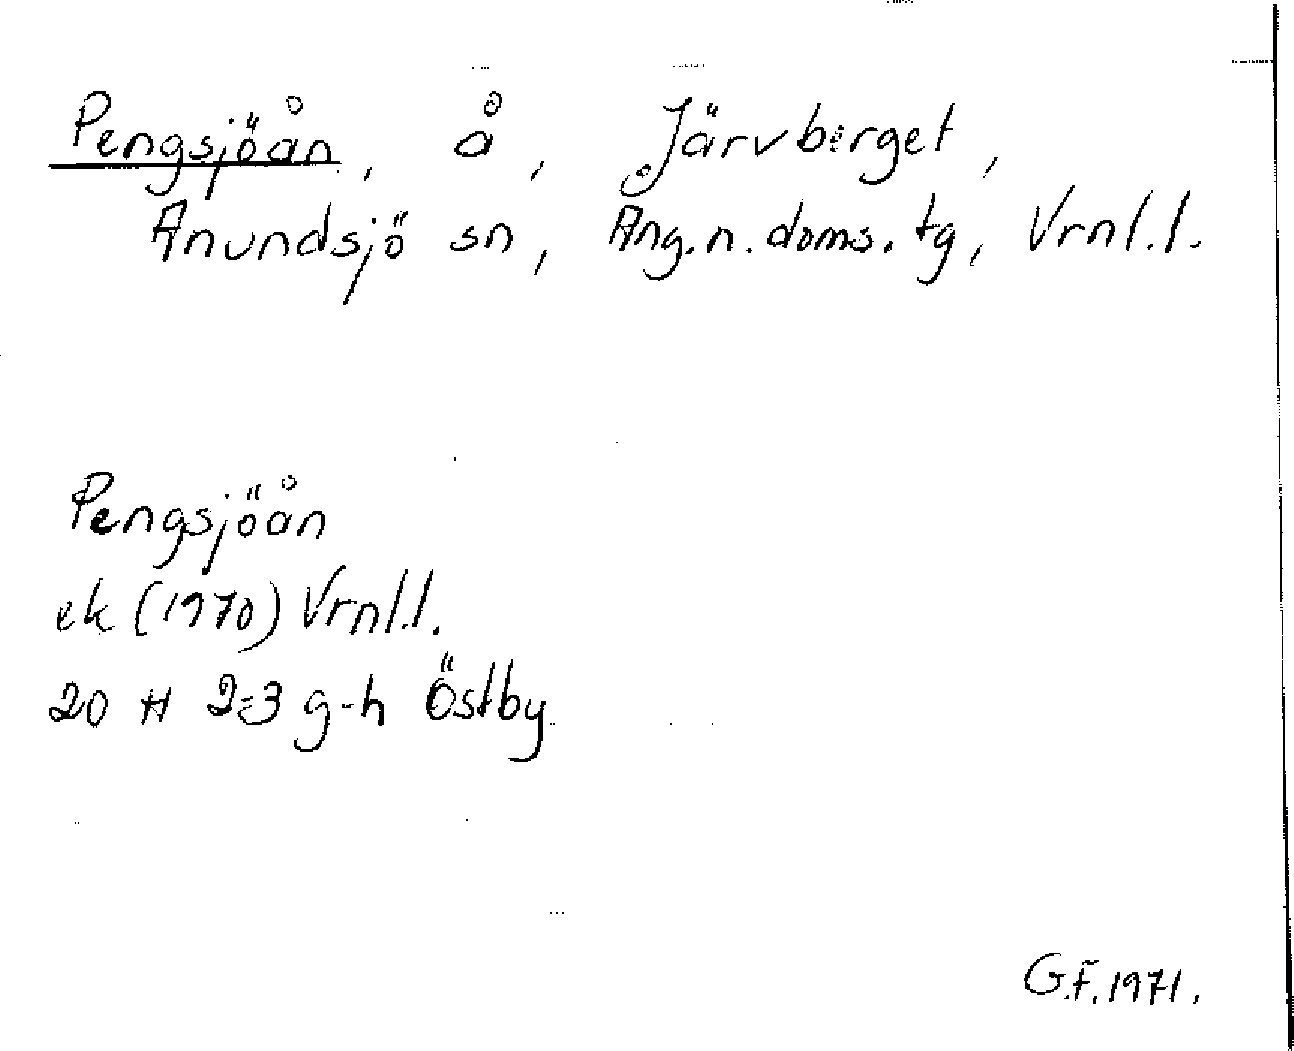 Pengsjöån, å, Järvberget,
Anundsjö sn, Ång.n.doms.tg, Vrnl.l.
Pengsjöån
ek (1970) Vrnl.l.
20 H 2-3 g-h Östby
G.F. 1971.